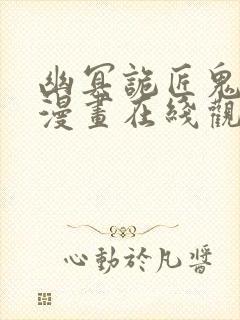 幽冥詭匠鬼
漫畫在綫觀
心動於凡醬